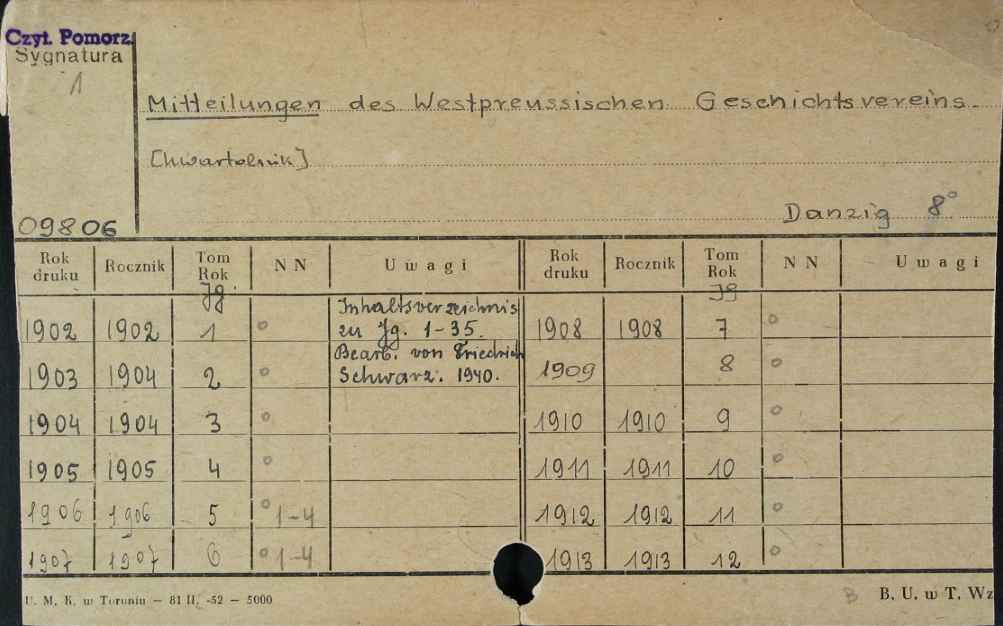 Czyt. Pomorz.
Sygnatura
1
Mitteilungen des Westpreussischen Geschichtsvereins.
[kwartalnik]
09806
Danzig 8°
Rok druku Rocznik Tom Rok NN Uwagi Rok druku Rocznik Tom Rok NN Uwagi
Jg Jg
1902 1902 1 ° Inhaltsverzeichnis zu Jg. 1-35. 1908 1908 7 °
1903 1904 2 ° Bearb. von Friedrich Schwarz. 1940. 1909 8 °
1904 1904 3 ° 1910 1910 9 °
1905 1905 4 ° 1911 1911 10 °
1906 1906 5 ° 1-4 1912 1912 11 °
1907 1907 6 ° 1-4 1913 1913 12 °
U. M. K. w Toruniu — 81 II. -52 — 5000
B B. U. w T. Wz